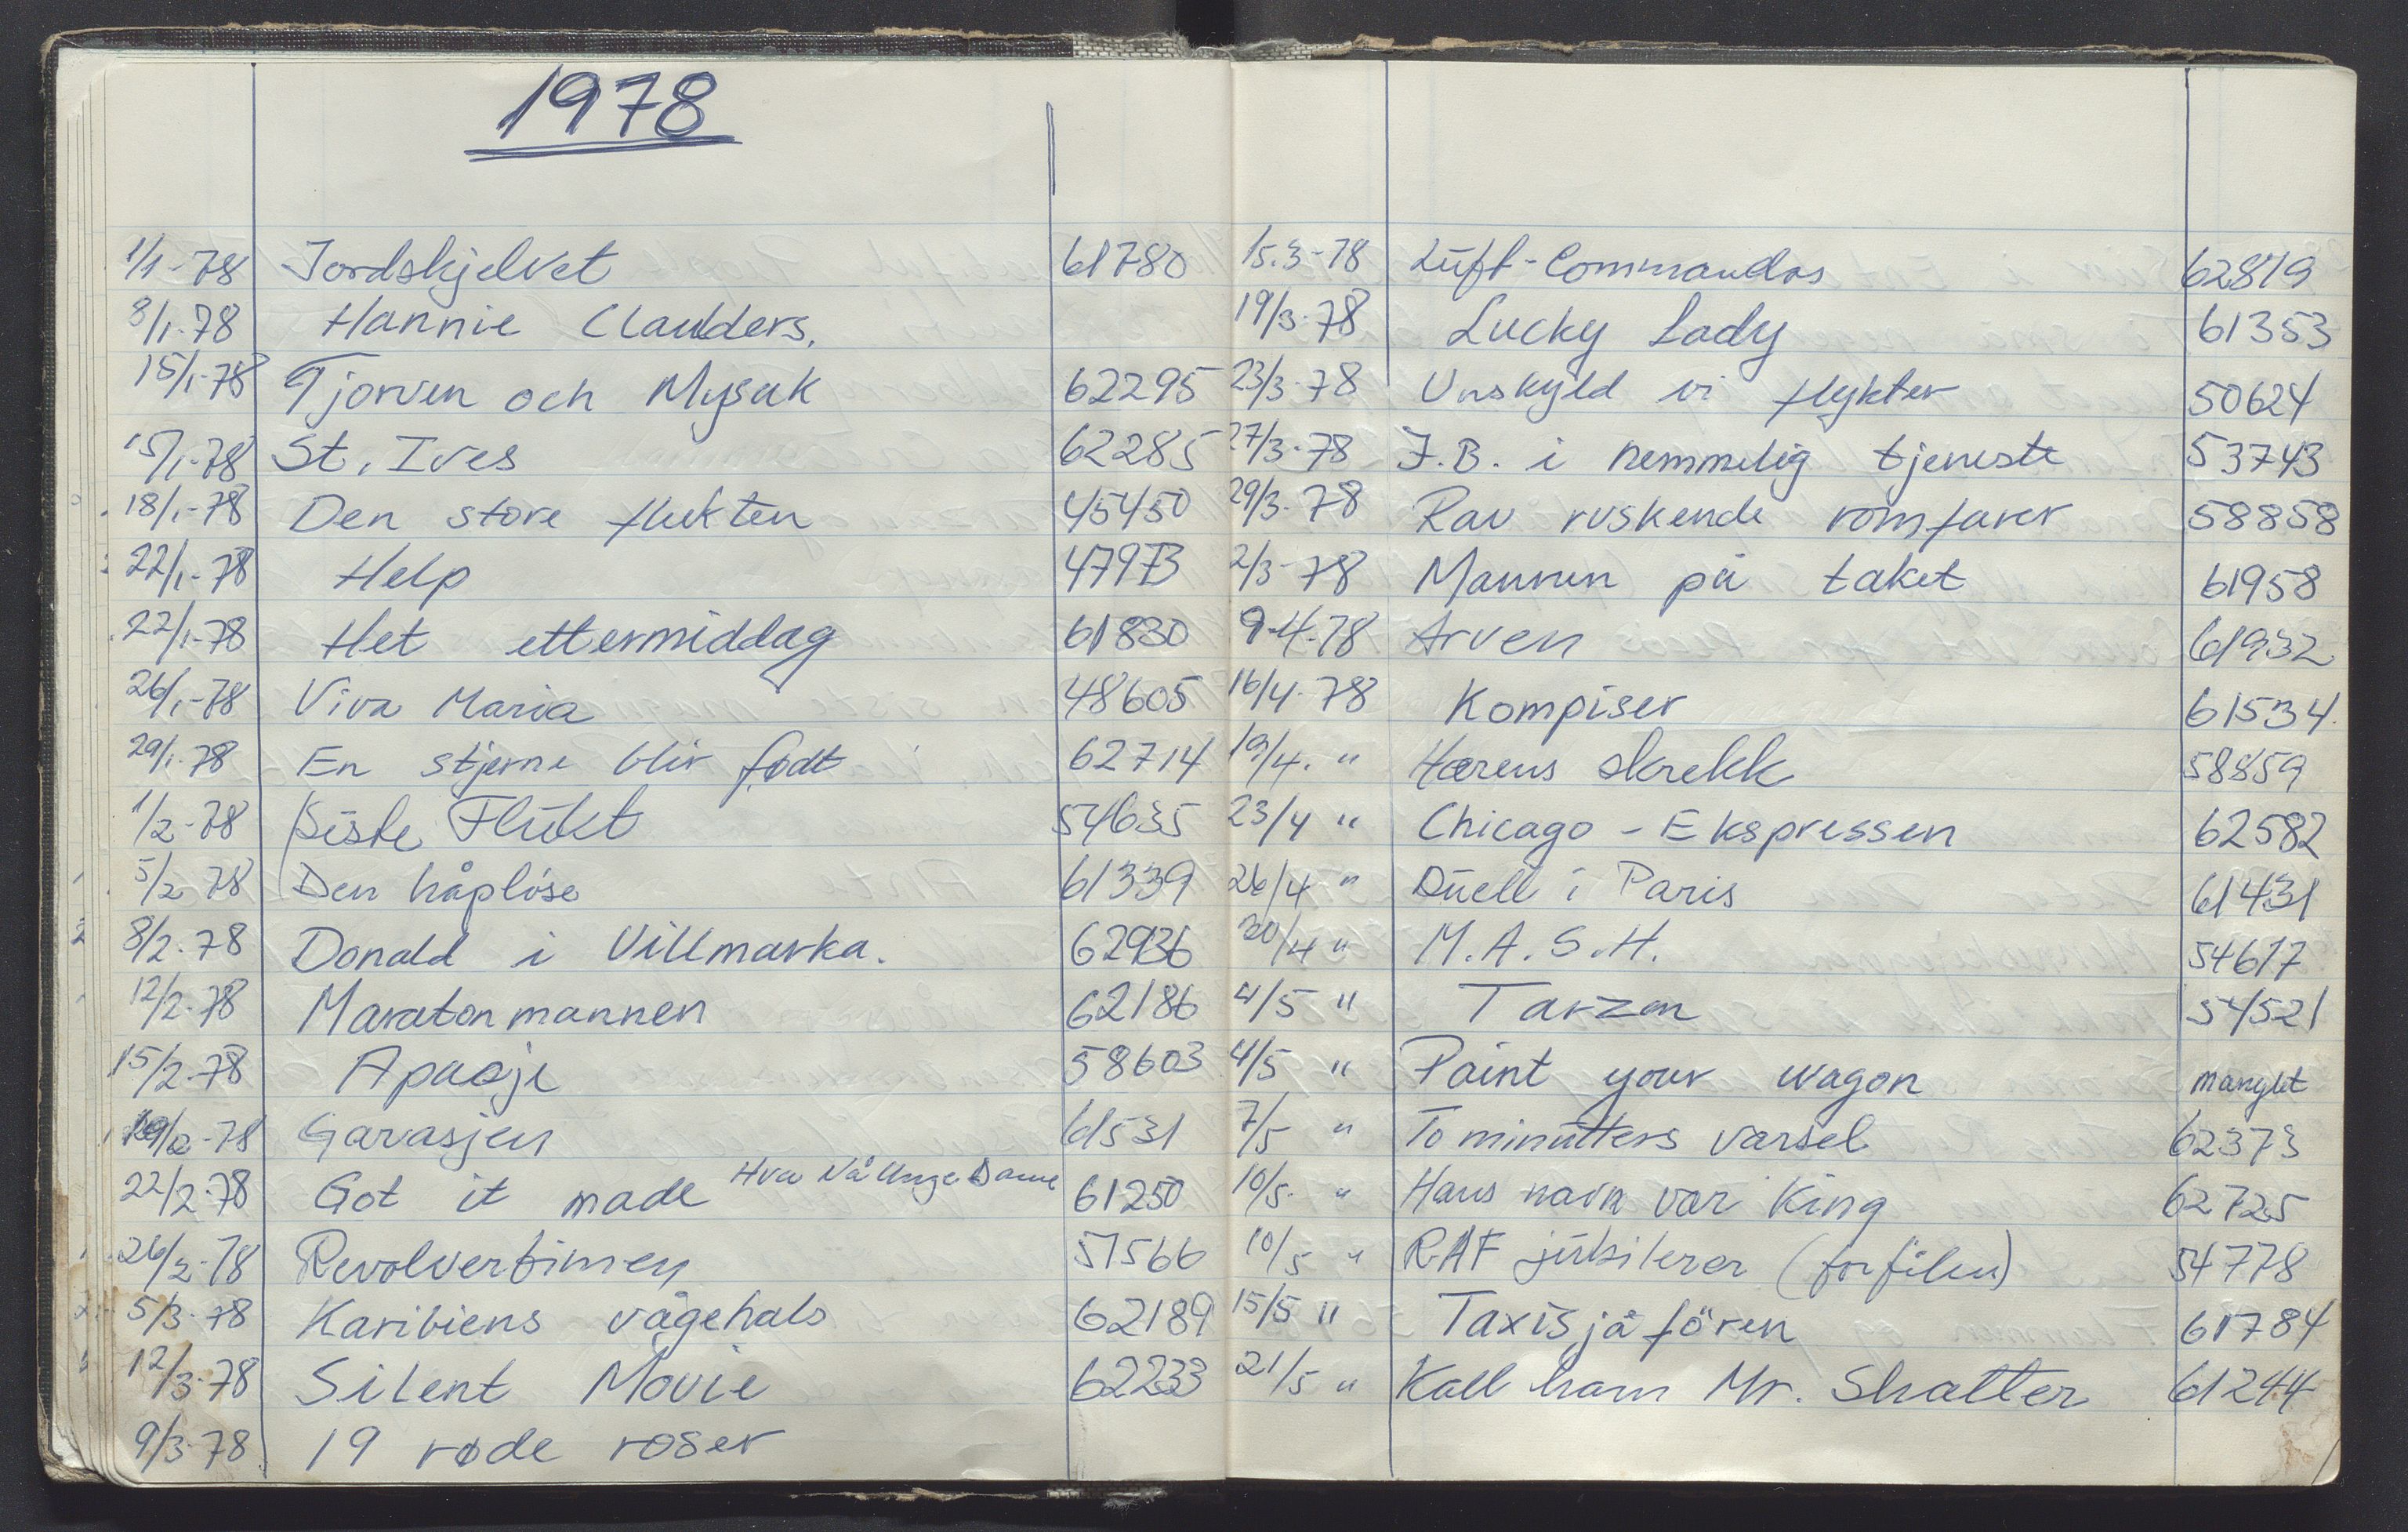 1978
1/1-78 Jordskjelvet 61780
8/1-78 Hannie Claulders.
15/1-78 Tjorven och Mysak 62295
15/1-78 St. Ives 62285
18/1-78 Den store flukten 45450
22/1-78 Help 47973
22/1-78 Het ettermiddag 61830
26/1-78 Viva Maria 48605
29/1-78 En stjerne blir født 62714
1/2-78 Siste Flukt 54635
5/2 78 Den håpløse 61339
8/2-78 Donald i Villmarka. 62936
12/2-78 Maratonmannen 62186
15/2-78 Apasje 58603
19/2-78 Garasjen 61531
22/2-78 Got it made Hva Nå Unge Dame 61250
26/2-78 Revolverbimey 51566
5/3-78 Karibiens vågehals 62189
12/3-78 Silent Movie 62233
9/3-78 19 røde roser
15.3-78 Luft-Commandos 62819
19/3-78 Lucky Lady 61353
23/3-78 Unskyld vi flykter 50624
27/3-78 J.B. i hemmelig tjeneste 53743
29/3-78 Rav ruskende romfarer 58858
2/3-78 Mannen på taket 61958
9-4-78 Arven 61932
16/4-78 Kompiser 61534
19/4. " Hærens skrekk 58859
23/4 " Chicago - Ekspressen 62582
26/4 " Duell i Paris 61431
30/4 " M.A.S.H. 54617
4/5 " Tarzan 54521
4/5 " Paint your wagon manglet
7/5 " To minutters varsel 62373
10/5. " Hans navn var King 62725
10/5 " RAF jubilerer (forfilm) 54778
15/5 " Taxisjåfören 61784
21/5 " Kall ham Mr. Shatter 61244